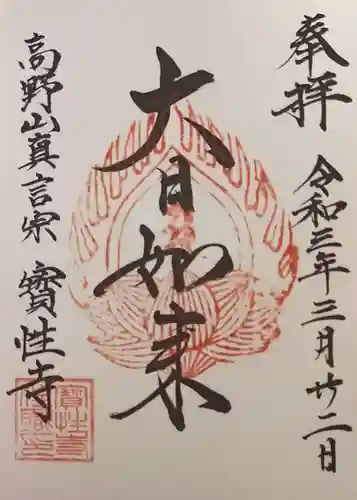 奉拝
令和三年三月廿二日
大日如来
高野山真言宗
寳性寺